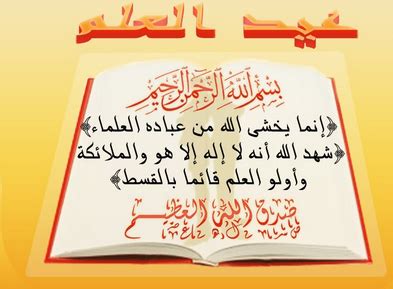 عيد العلم
بسم الله الرحمن الرحيم
﴿إنما يخشى الله من عباده العلماء﴾
﴿شهد الله أنه لا إله إلا هو والملائكة
وأولو العلم قائما بالقسط﴾
صدق الله العظيم